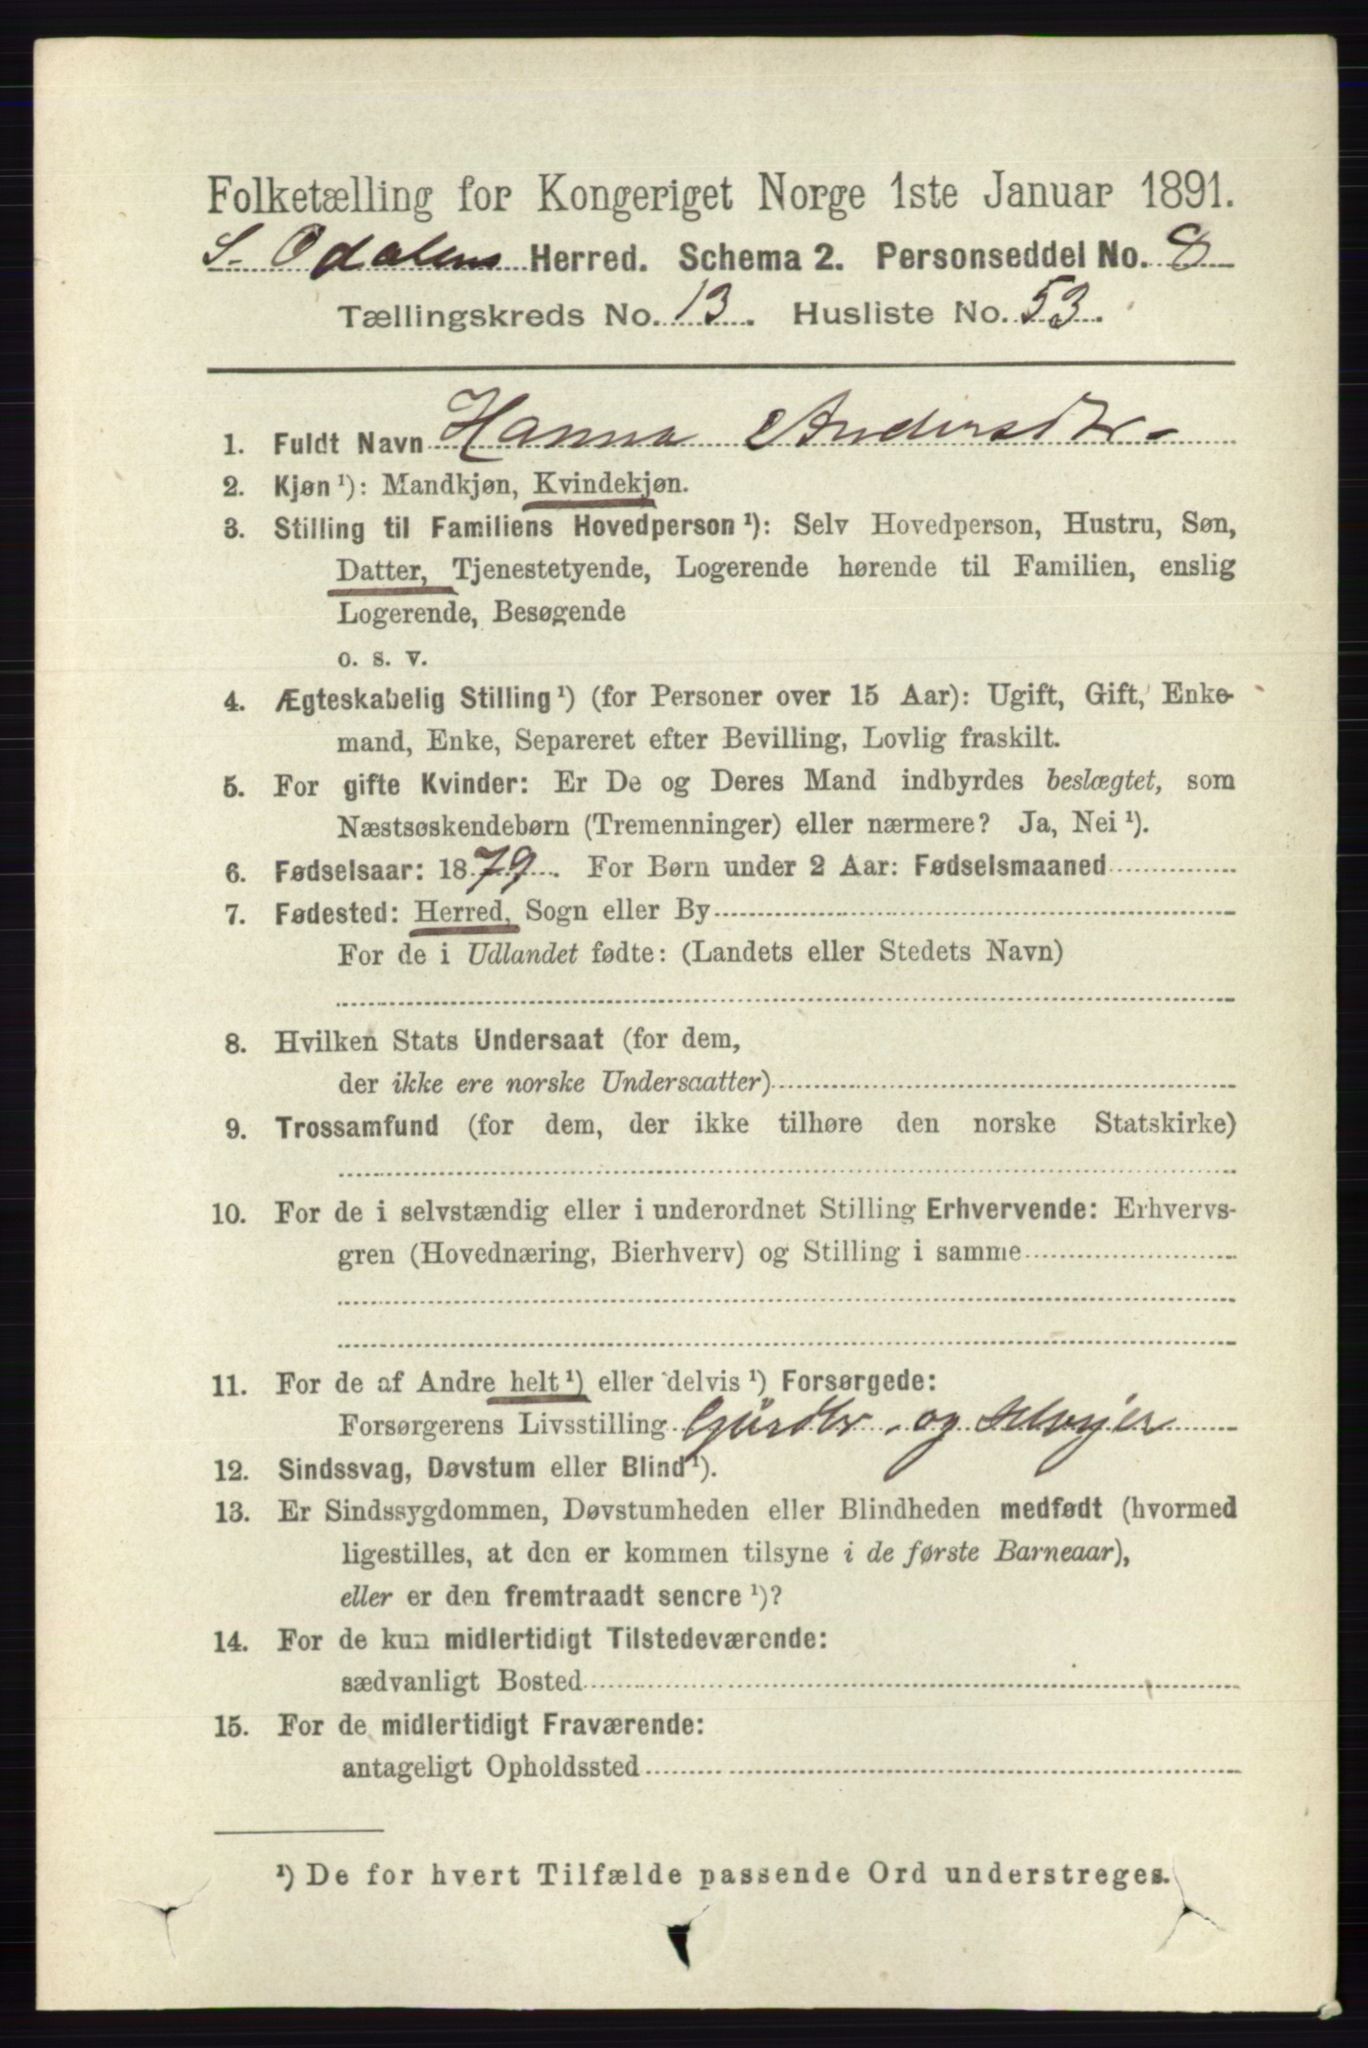 Folketælling for Kongeriget Norge 1ste Januar 1891.
S. Odalens Herred. Schema 2. Personseddel No. 8
Tællingskreds No. 13. Husliste No. 53.
1. Fuldt Navn Hanna Andersdtr.
2. Kjøn ¹): Mandkjøn, Kvindekjøn.
3. Stilling til Familiens Hovedperson ¹): Selv Hovedperson, Hustru, Søn,
Datter, Tjenestetyende, Logerende hørende til Familien, enslig
Logerende, Besøgende
o. s. v.
4. Ægteskabelig Stilling ¹) (for Personer over 15 Aar): Ugift, Gift, Enke-
mand, Enke, Separeret efter Bevilling, Lovlig fraskilt.
5. For gifte Kvinder: Er De og Deres Mand indbyrdes beslægtet, som
Næstsøskendebørn (Tremenninger) eller nærmere? Ja, Nei ¹).
6. Fødselsaar: 1879. For Børn under 2 Aar: Fødselsmaaned
7. Fødested: Herred, Sogn eller By
For de i Udlandet fødte: (Landets eller Stedets Navn)
8. Hvilken Stats Undersaat (for dem,
der ikke ere norske Undersaatter)
9. Trossamfund (for dem, der ikke tilhøre den norske Statskirke)
10. For de i selvstændig eller i underordnet Stilling Erhvervende: Erhvervs-
gren (Hovednæring, Bierhverv) og Stilling i samme
11. For de af Andre helt ¹) eller delvis ¹) Forsørgede:
Forsørgerens Livsstilling Gårdbr. og Selvejer
12. Sindssvag, Døvstum eller Blind ¹).
13. Er Sindssygdommen, Døvstumheden eller Blindheden medfødt (hvormed
ligestilles, at den er kommen tilsyne i de første Barneaar),
eller er den fremtraadt senere ¹)?
14. For de kun midlertidigt Tilstedeværende:
sædvanligt Bosted
15. For de midlertidigt Fraværende:
antageligt Opholdssted
¹) De for hvert Tilfælde passende Ord understreges.